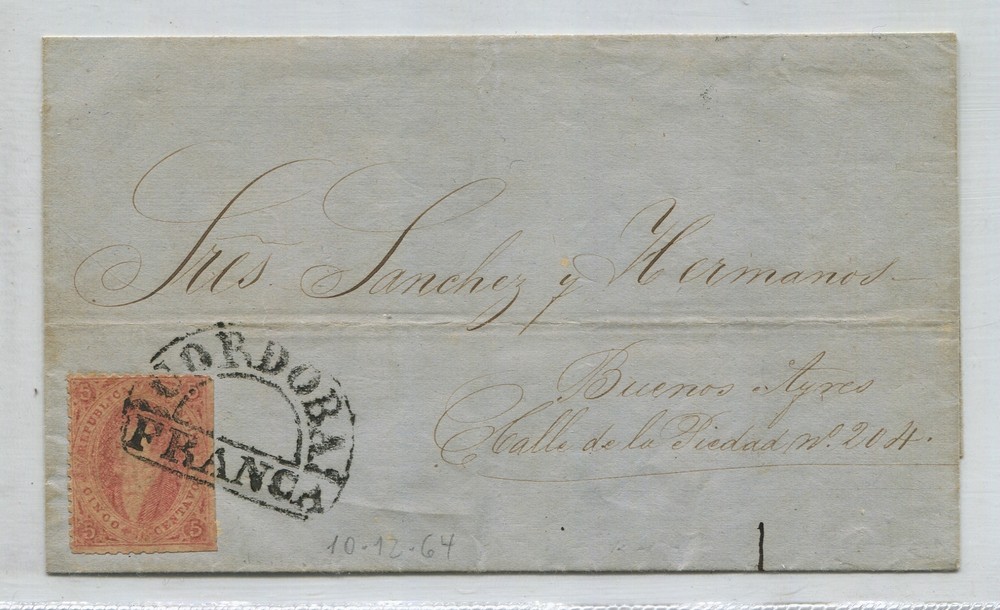 Sres. Sanchez y Hermanos
Buenos Ayres
Calle de la Piedad nº. 204.
CORDOBA
FRANCA
REPUBLIC
5 CINCO CENTAVO 5
10-12-64